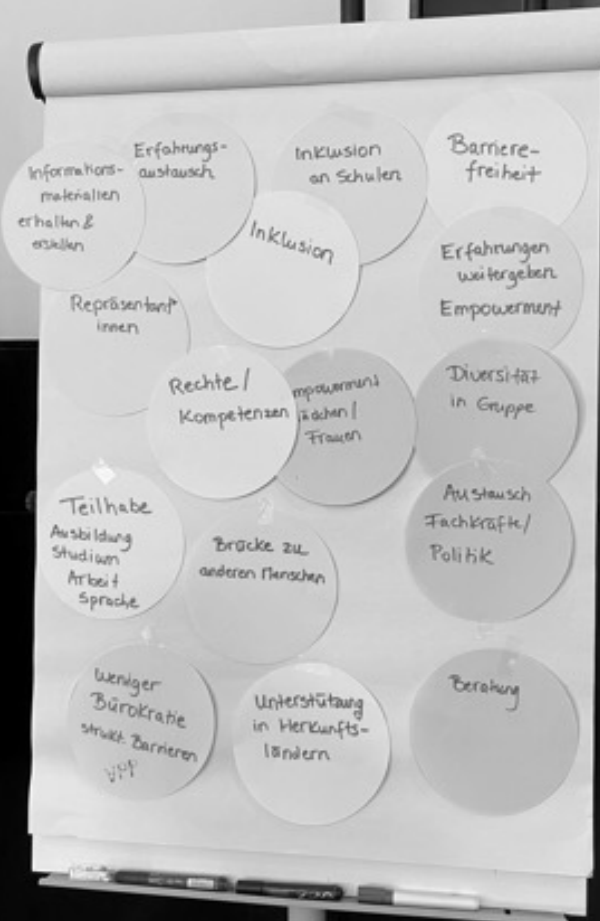 Informations-
materialien
erhalten &
erstellen
Erfahrungs-
austausch
Inklusion
an Schulen
Barriere-
freiheit
Inklusion
Erfahrungen
weitergeben
Empowerment
Repräsentant*
innen
Rechte/
Kompetenzen
mpowerment
ädchen/
Frauen
Diversität
in Gruppe
Teilhabe
Ausbildung
Studium
Arbeit
Sprache
Brücke zu
anderen Menschen
Austausch
Fachkräfte/
Politik
Weniger
Bürokratie
strukt. Barrieren
VPP
Unterstützung
in Herkunfts-
ländern
Beratung